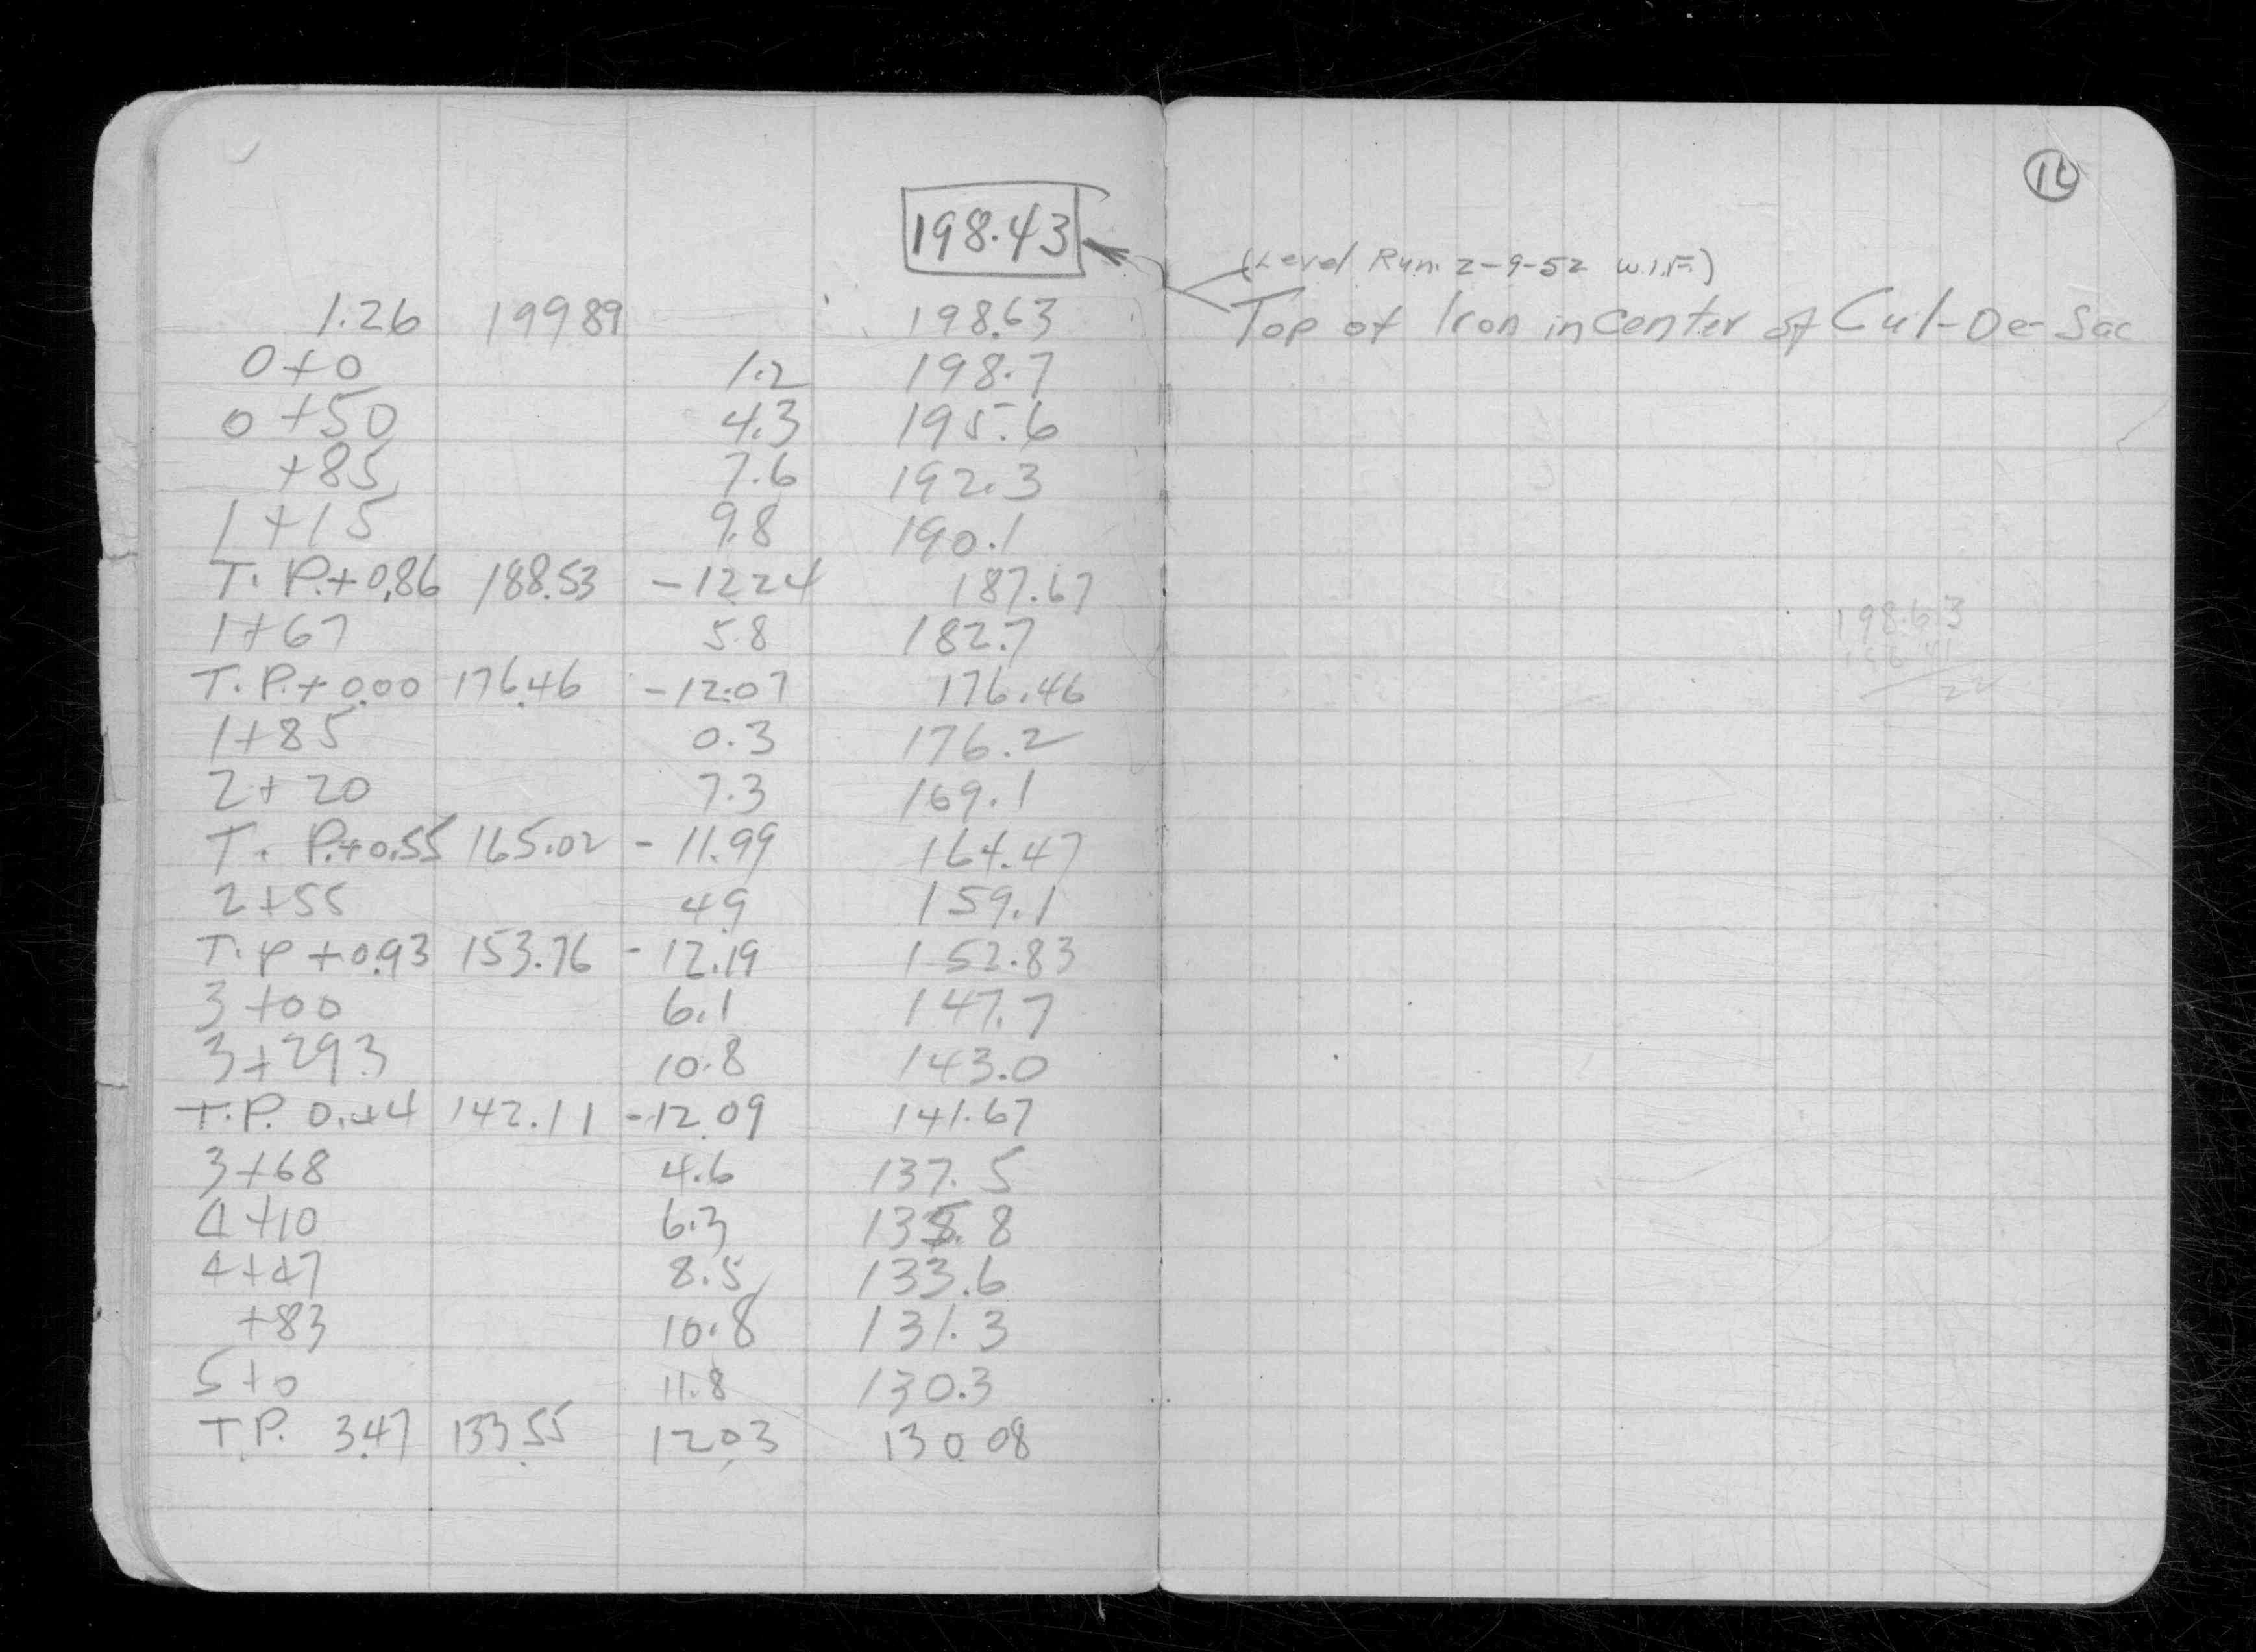 198.43
1.26 199.89 198.63
0+0 1.2 198.7
0+50 4.3 195.6
+85 7.6 192.3
1+15 9.8 190.1
T.P.+0.86 188.53 -12.24 187.67
1+67 5.8 182.7
T.P.+0.00 176.46 -12.07 176.46
1+85 0.3 176.2
2+20 7.3 169.1
T.P.+0.55 165.02 -11.99 164.47
2+55 4.9 159.1
T.P+0.93 153.76 -12.19 152.83
3+00 6.1 147.7
3+29.3 10.8 143.0
T.P. 0.44 142.11 -12.09 141.67
3+68 4.6 137.5
4+10 6.3 135.8
4+47 8.5 133.6
+83 10.8 131.3
5+0 11.8 130.3
T.P. 3.47 133.55 12.03 130.08
(Level Run. 2-9-52 W.I.F.)
Top of Iron in Center of Cul-De-Sac
198.63
22